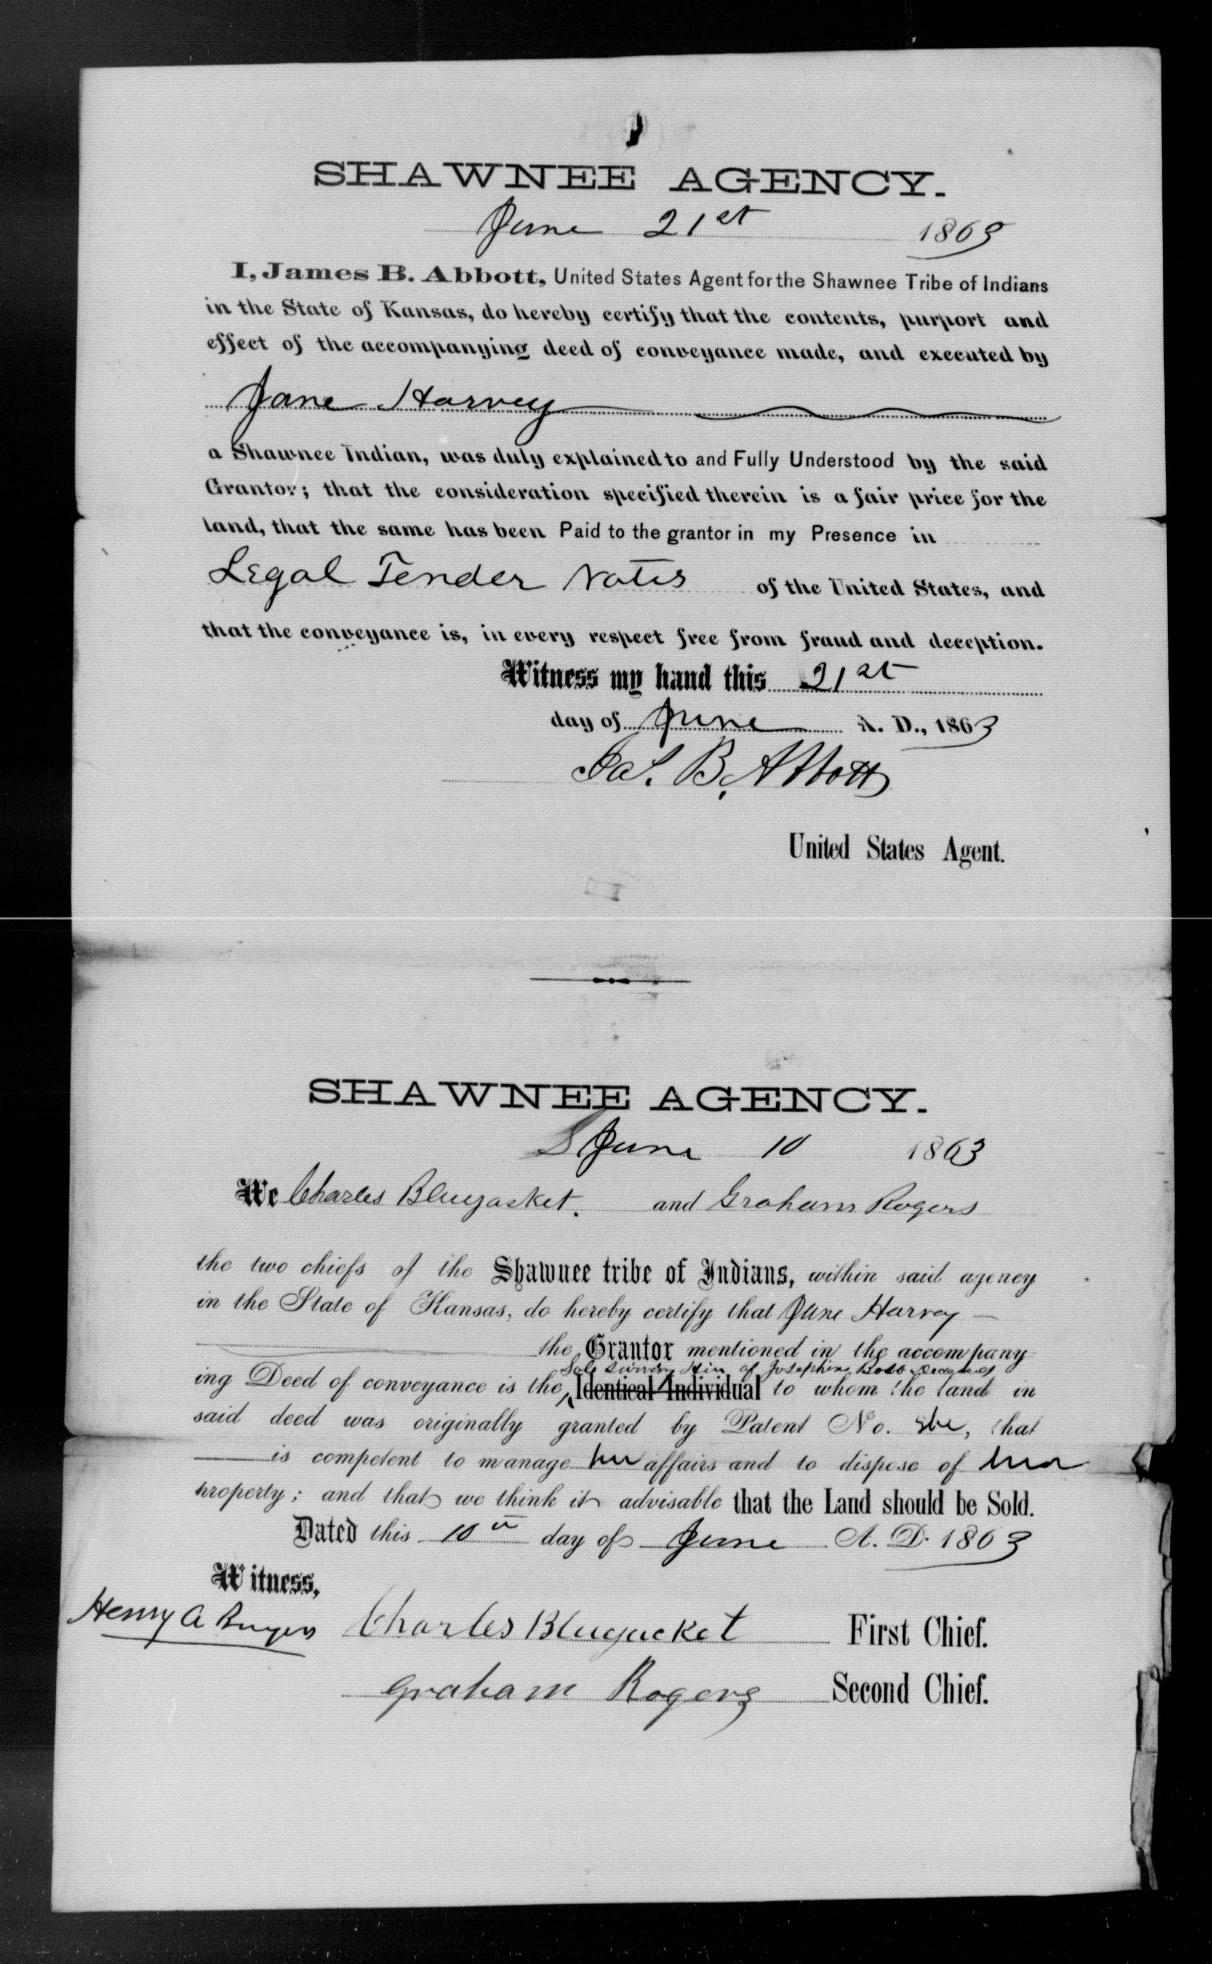 SHAWNEE AGENCY.
June 21st 1863
I, James B. Abbott, United States Agent for the Shawnee Tribe of Indians
in the State of Kansas, do hereby certify that the contents, purport and
effect of the accompanying deed of conveyance made, and executed by
Jane Harvey
a Shawnee Indian, was duly explained to and Fully Understood by the said
Grantor; that the consideration specified therein is a fair price for the
land, that the same has been Paid to the grantor in my Presence in
Legal Tender Notes of the United States, and
that the conveyance is, in every respect free from fraud and deception.
Witness my hand this 21st
day of June A. D., 1863
Jas. B. Abbott
United States Agent.
SHAWNEE AGENCY.
June 10 1863
We Charles Bluejacket. and Graham Rogers
the two chiefs of the Shawnee tribe of Indians, within said agency
in the State of Kansas, do hereby certify that Jane Harvey
the Grantor mentioned in the accompany
Sole of Josephine Deceased
ing Deed of conveyance is the Identical Individual to whom the land in
said deed was originally granted by Patent No. she, that
is competent to manage her affairs and to dispose of her
property; and that we think it advisable that the Land should be Sold.
Dated this 10th day of June A. D. 1863
Witness,
Henry A
Charles Bluejacket First Chief.
Graham Rogers Second Chief.